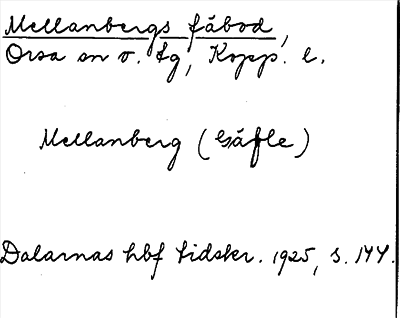 Mellanbergs fäbod,
Orsa sn o. tg, Kopp. l.
Mellanberg (Gäfle)
Dalarnas hbf tidskr. 1925, s. 144.